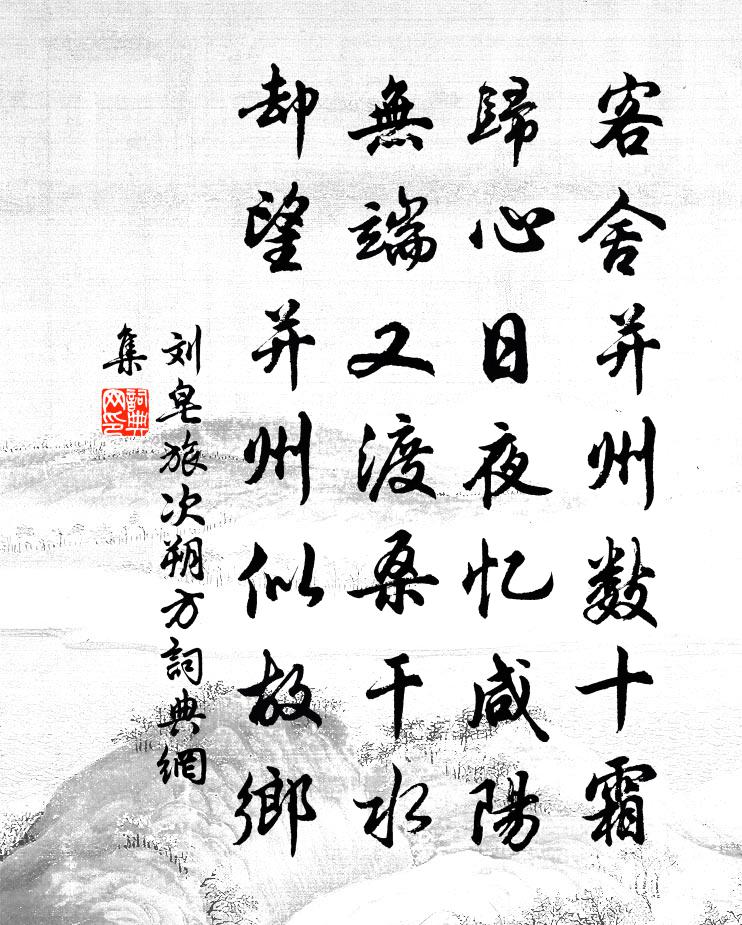 客舍并州數十霜
歸心日夜忆咸陽
無端又渡桑干水
却望并州似故鄉
刘皂旅次朔方詞典網
集
詞典
网印